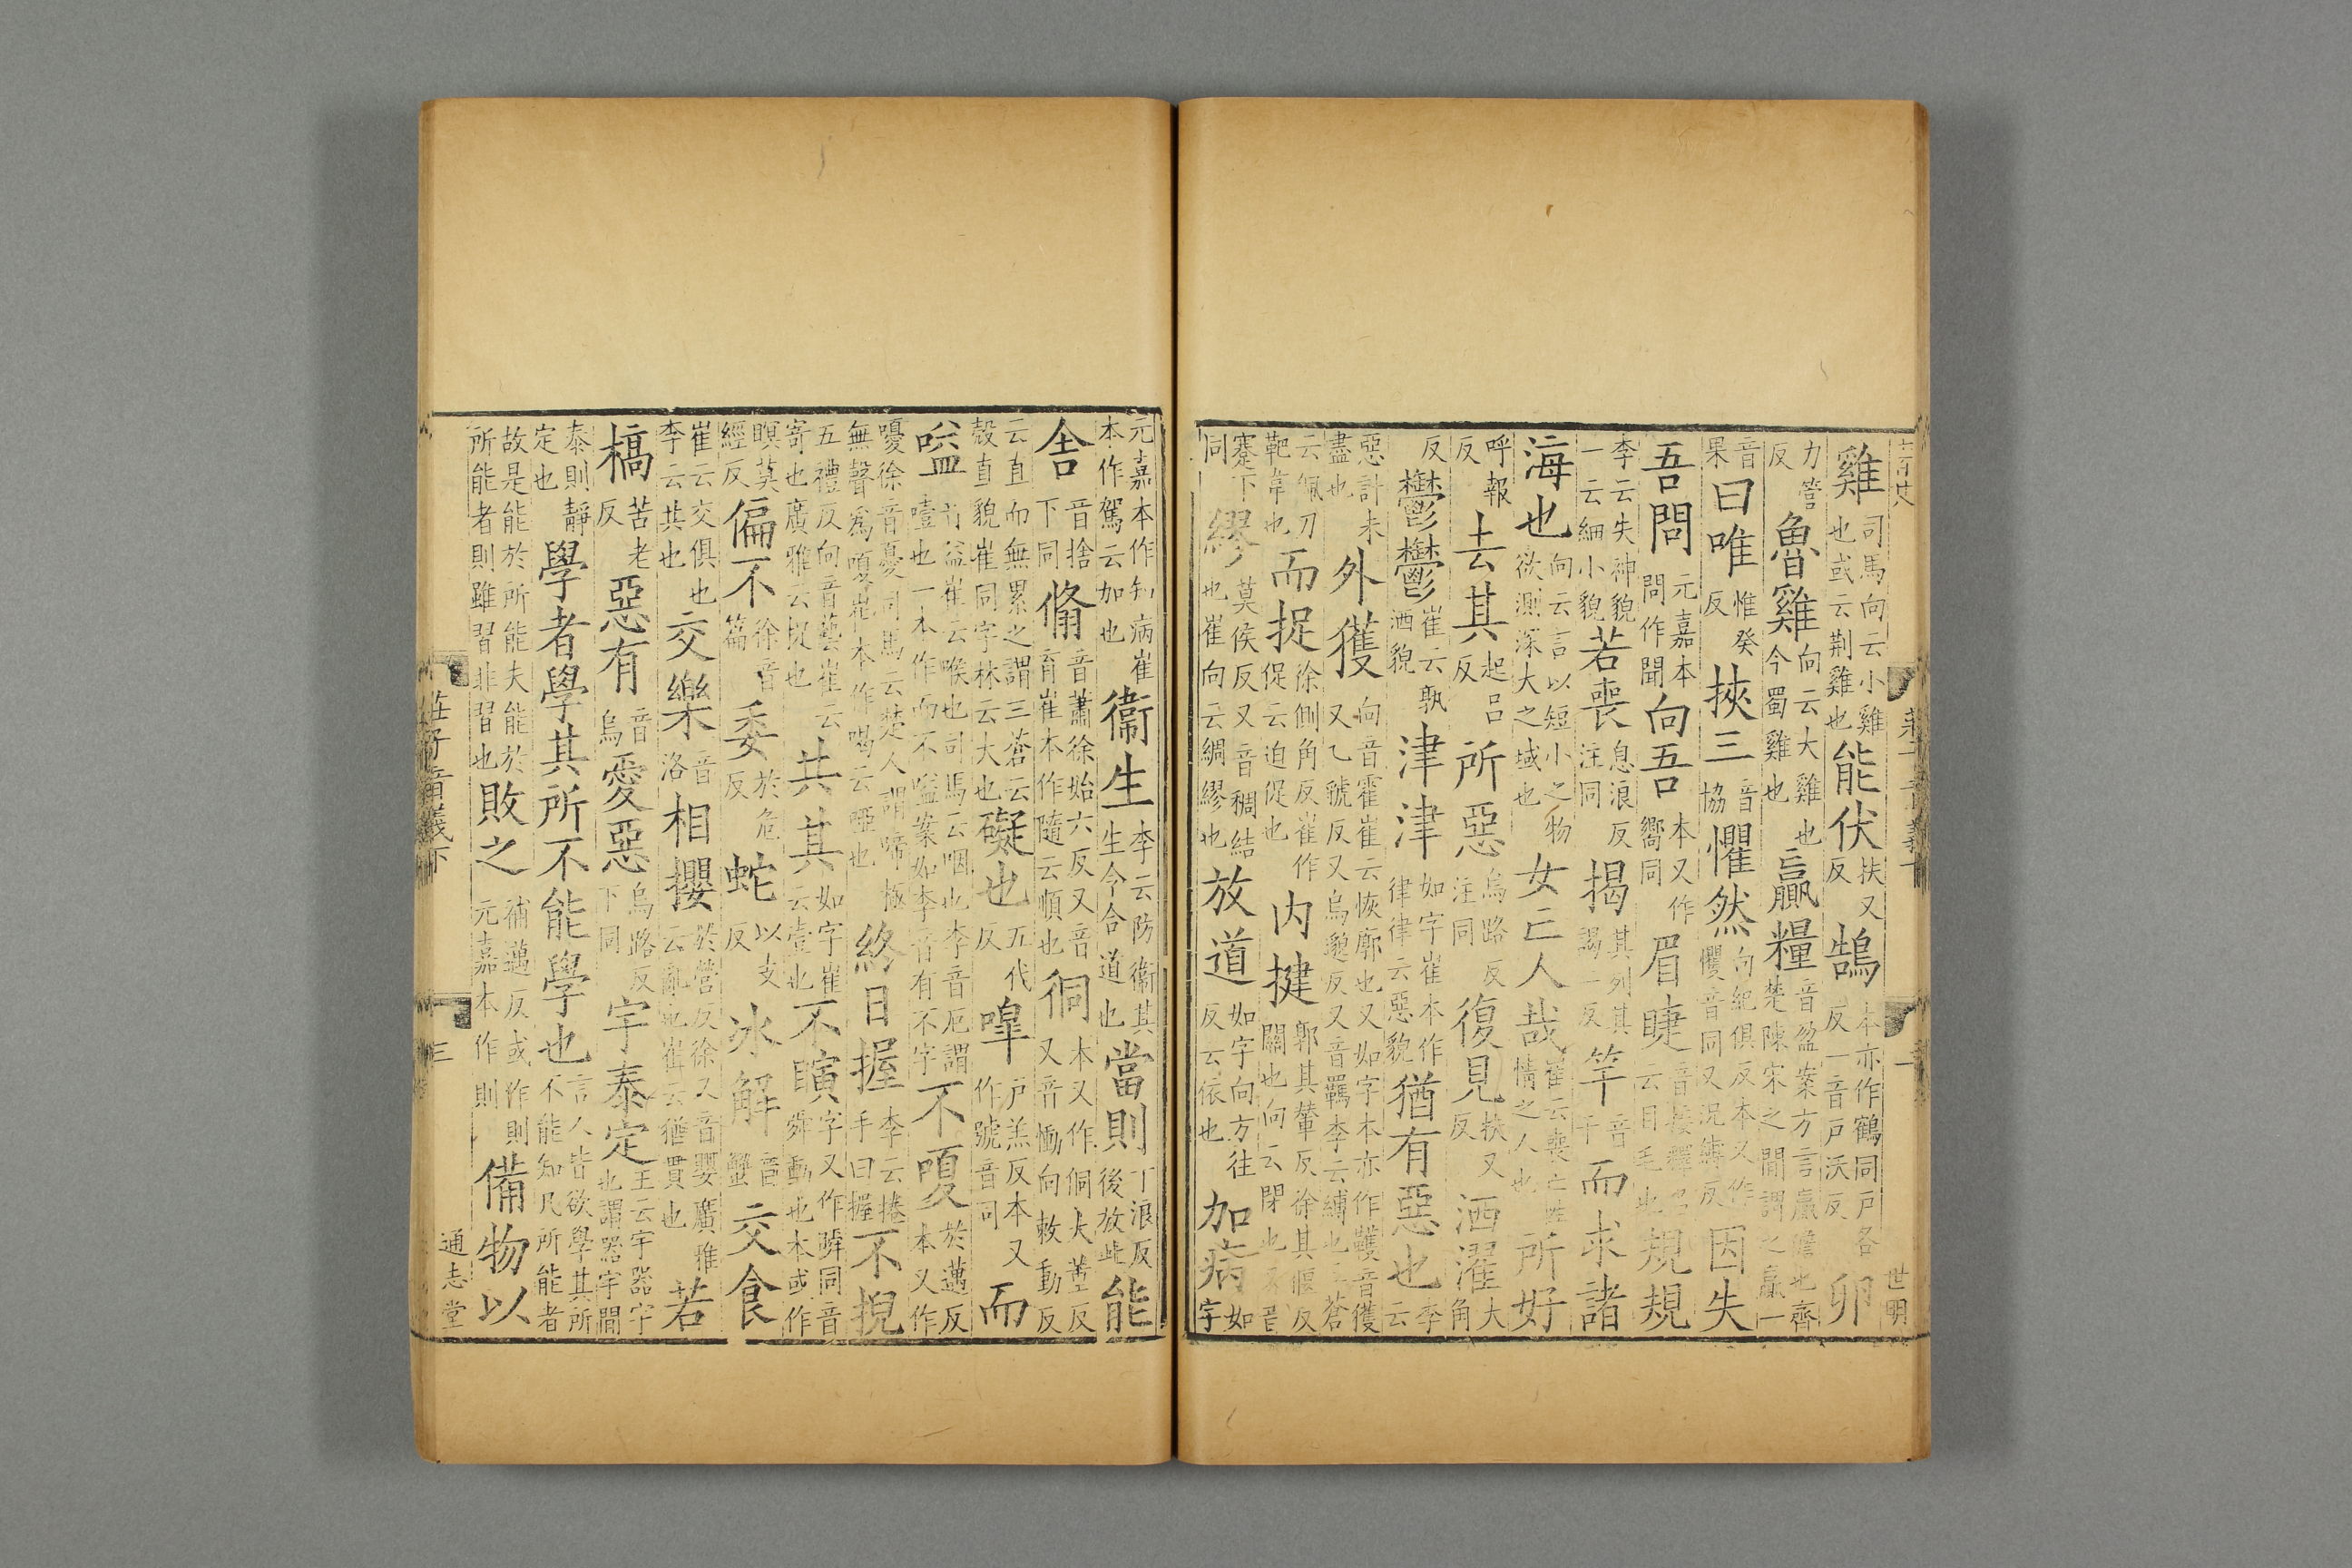 世明
雞司馬向云小雞也或云荆雞也能伏扶又反鵠本亦作鶴同戸各反一音戸沃反卵
力管反魯雞向云大雞也今蜀雞也贏糧音盈案方言贏儋也齊楚陳宋之間謂之贏一
音果曰唯惟癸反挾三音協懼然向紀俱反本又作戄音同又況縛反因失
吾問元嘉本問作聞向吾本又作嚮同眉睫音接釋名云目毛也規規
李云失神貌一云細小貌若喪息浪反注同揭其列其謁二反竿音干而求諸
海也向云言以短小之物欲測深大之域也女亡人哉崔云喪亡性情之人也所好
呼報反去其起呂反所惡烏路反注同復見扶又反洒濯大角
反鬱鬱崔云孰洒貌津津如字崔本作律律云惡貌猶有惡也李云
惡計未盡也外獲向音霍崔云恢廓也又如字本亦作韄音獲又乙虢反又烏邈反又音羈李云縛也三蒼
云佩刀靶韋也而捉徐側角反崔作促云迫促也内揵郭其輦反徐其偃反關也向云閉也又音
蹇下同繆莫侯反又音稠結也崔向云綢繆也放道如字向方往反云依也加病如字
元嘉本作知病崔本作駕云加也衞生李云防衞其生令合道也當則丁浪反後放此能
舍音捨下同翛音蕭徐始六反又音育崔本作隨云順也侗本又作侗大董反又音慟向敕動反
云直而無累之謂三蒼云殼直貌崔同字林云大也礙也五代反嘷戸羔反本又作號音同而
嗌音益崔云喉也司馬云咽也李音厄謂噎也一本作而不嗌案如李音有不字不嗄於邁反本又作
嚘徐音憂司馬云楚人謂啼極無聲爲嗄崔本作喝云啞也終日握李云捲手曰握不掜
五禮反向音藝崔云寄也廣雅云捉也共其如字崔云壹也不瞚字又作瞬同音舜動也本或作
瞑莫經反偏不徐音篇委於危反蛇以支反冰解音蟹交食
崔云交俱也李云共也交樂音洛相攖於營反徐又音嬰廣雅云亂也崔云猶貫也若
槁苦老反惡有音烏愛惡烏路反下同宇泰定王云宇器宇也謂器宇閒
泰則靜定也學者學其所不能學也言人皆欲學其所不能知凡所能者
故是能於所能夫能於所能者則雖習非習也敗之補邁反或作則元嘉本作則備物以
莊子音義下 三 通志堂